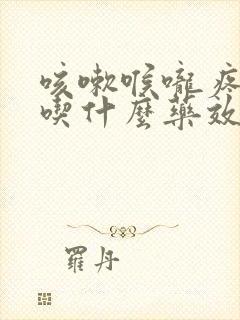 咳嗽喉嚨疼
喫什麼藥效
羅丹